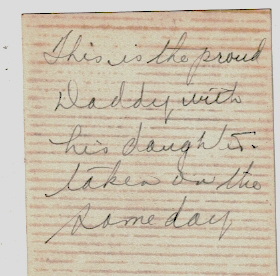 This is the proud
Daddy with
his daughter.
taken on the
same day